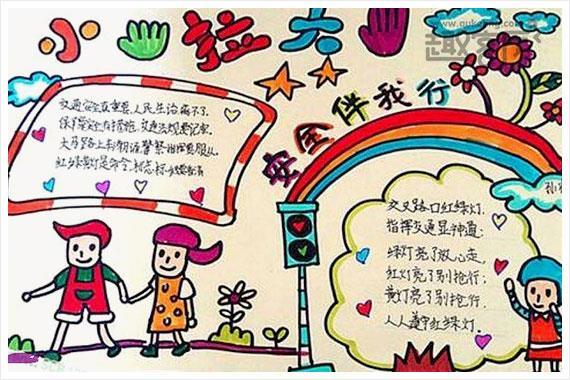 小手拉大手
安全伴我行
交通安全真重要,人民生活离不了.
保护安全有措施,交通法规要记牢.
大马路上车辆多,警察指挥要服从.
红绿黄灯是命令,标志标
交叉路口红绿灯.
指挥交通显神通;
绿灯亮了放心走,
红灯亮了别抢行;
黄灯亮了别抢行;
人人遵守红绿灯.
www.qukejing.com